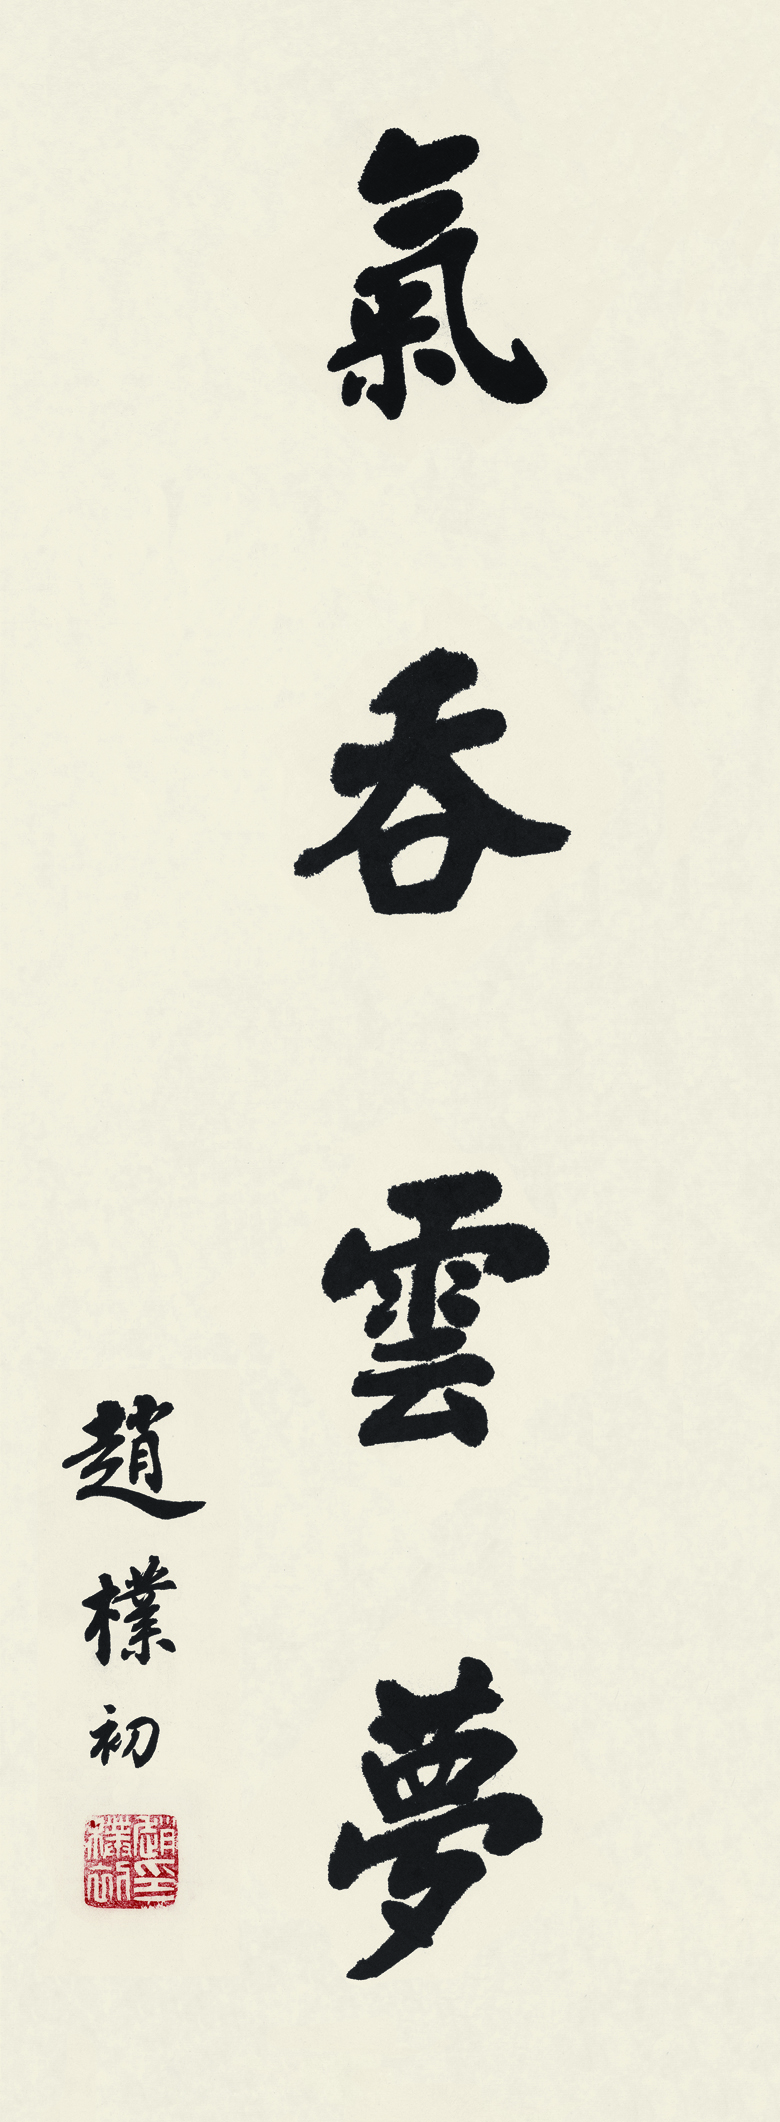 氣吞雲夢
趙樸初
趙樸初印